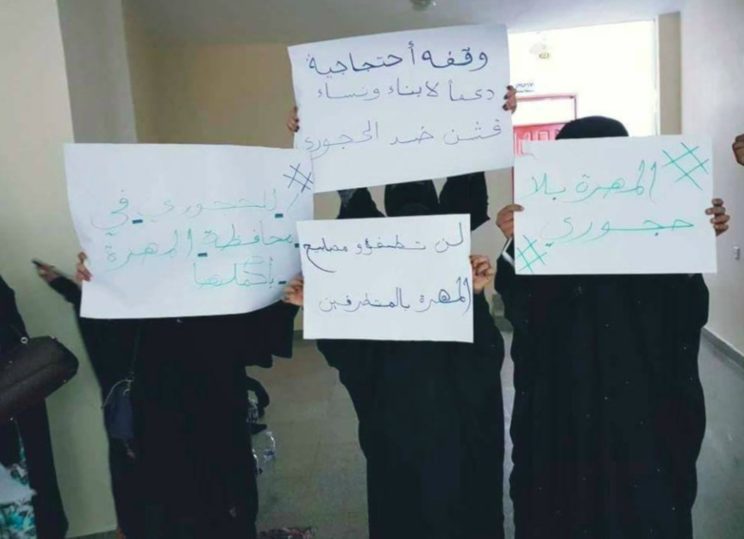 وقفه أحتجاجية
دعماً لابناء ونساء
قشن ضد الحجوري
#
لا للحجوري في
محافظة المهرة
بأكملها
لن تطفؤو مصابيح
المهرة بالمتطرفين
# المهرة بلا
حجوري #